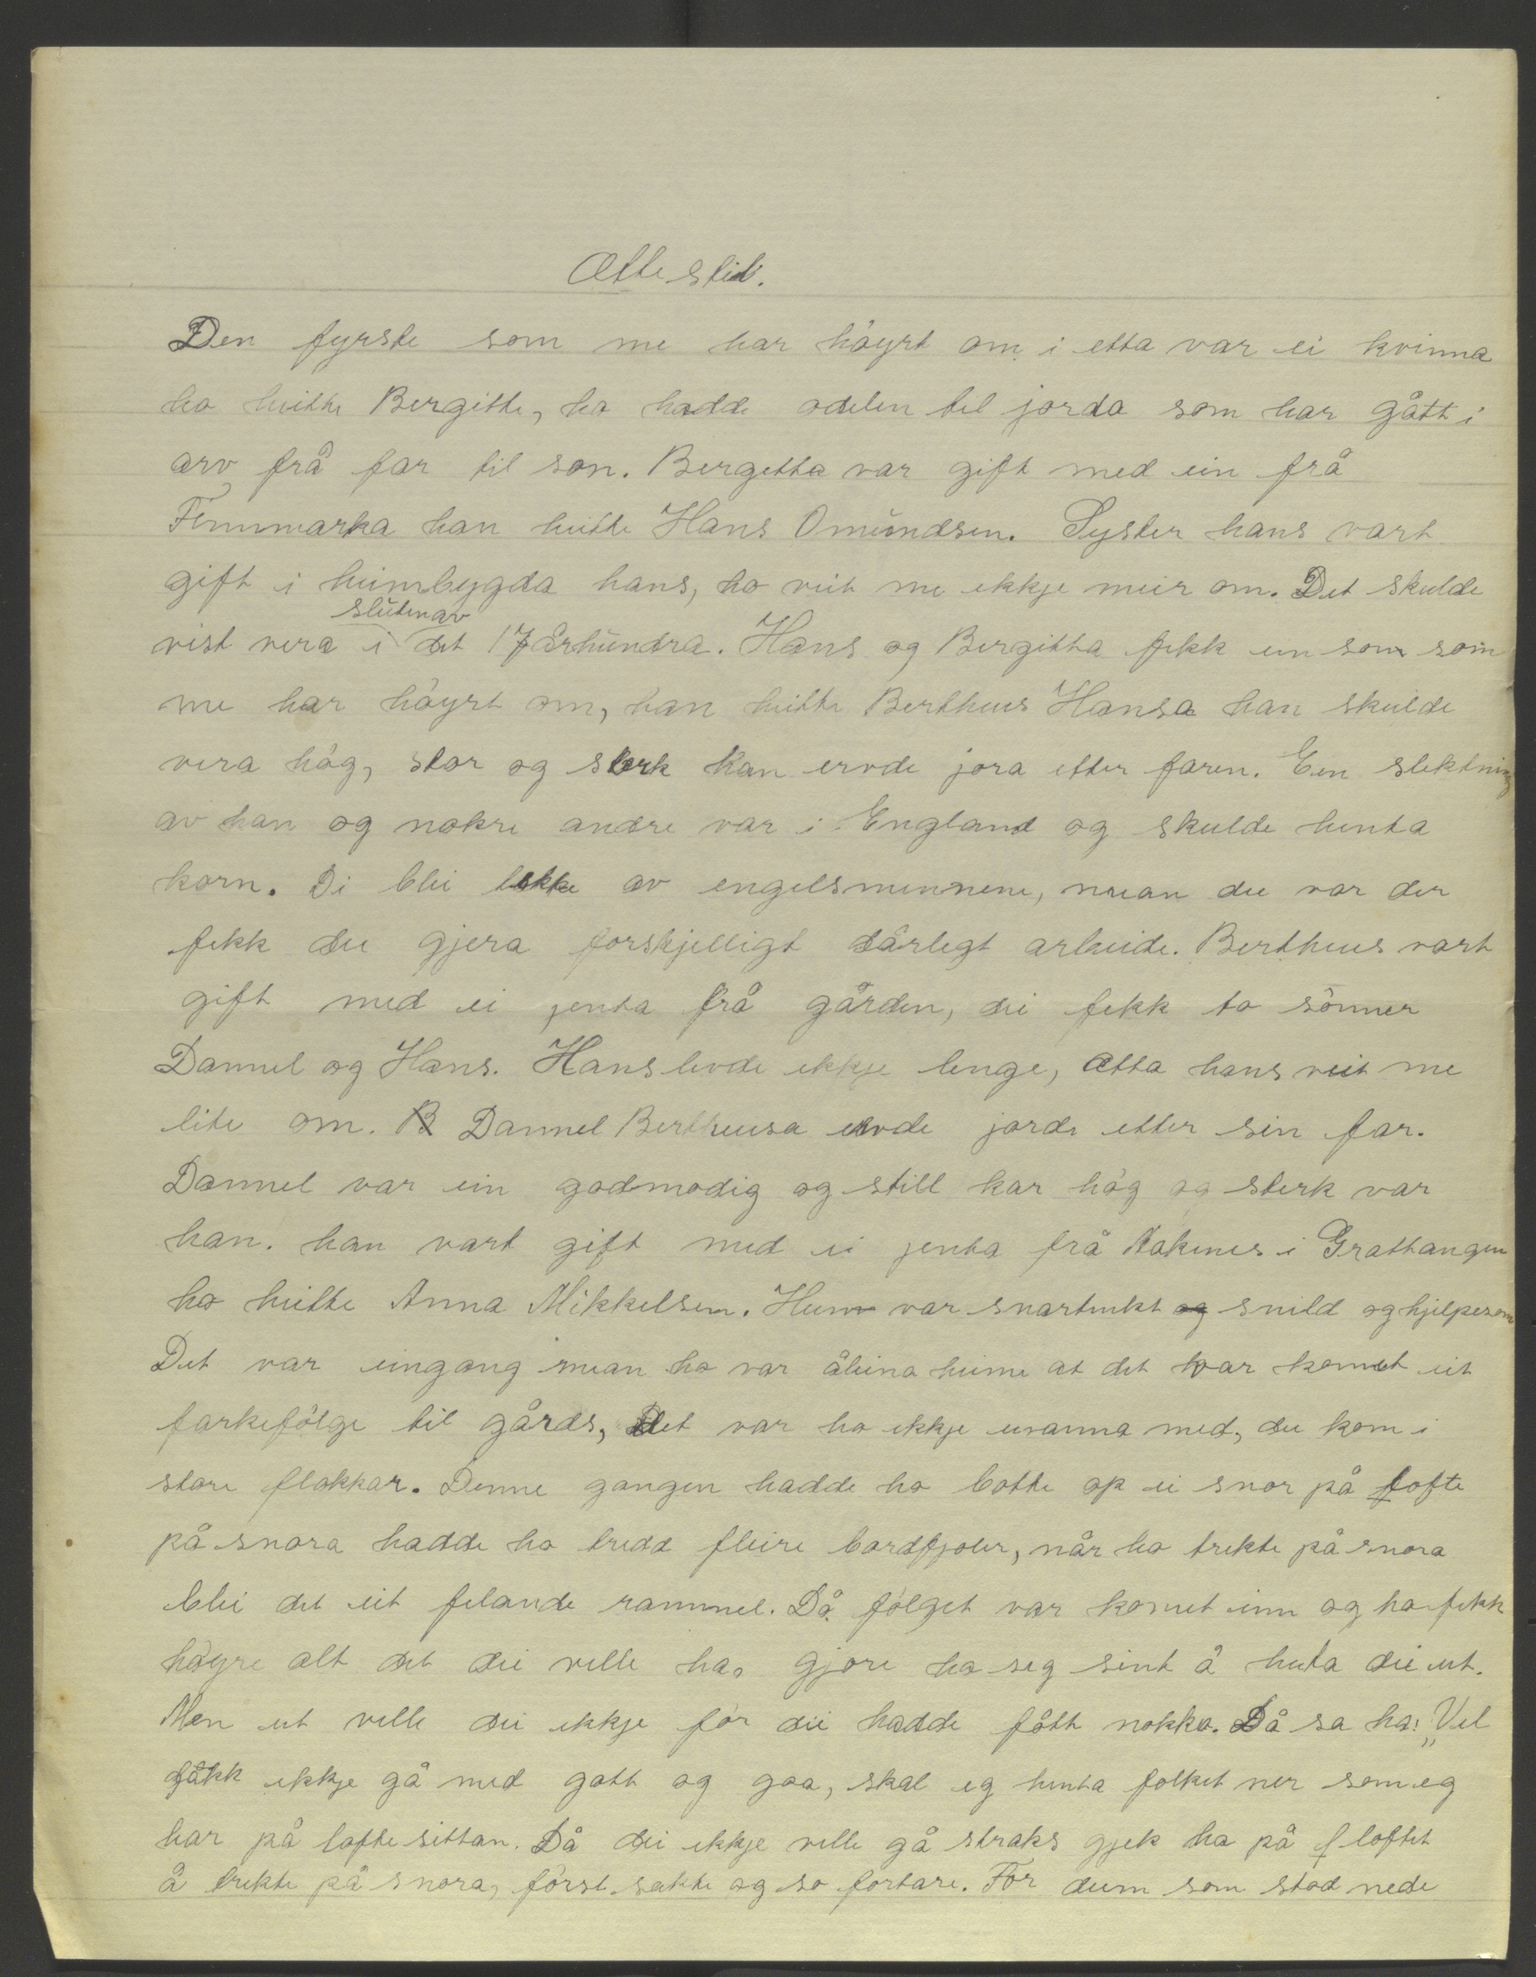 Ættestid.
Den fyrste som me har höyrt om i etta var ei kvinna
ho heitte Bergitte, ho hadde odelen til jorda som har gått i
arv frå far til son. Bergetta var gift med ein frå
Finnmarka han heitte Hans Omundsen. Syster hans vart
gift i heimbygda hans, ho veit me ekkje meir om. Det skulde
sluten av
vist vera i det 17 århundra. Hans og Bergitta fekk ein son som
me har höyrt om, han heitte Bertheus Hansa han skulde
vera hög, stor og sterk han ervde jora etter faren. Ein slektning
av han og nokre andre var i England og skulde henta
korn. Di blei tekke av engelsmennene, mean dei var der
fekk dei gjera forskjelligt dårlegt arbeide. Bertheus vart
gift med ei jenta frå gården, dei fekk to sönner
Dannel og Hans. Hans levde ekkje lenge, ætta hans veit me
lite om. Dannel Bertheusa ervde jorda etter sin far.
Dannel var ein godmodig og still kar hög og sterk var
han. han vart gift med ei jenta frå Hakenes i Grattangen
ho heitte Anna Mikkelsen. Hun var snartenkt og snild og hjelpesom
Det var eingang mean ho var åleina heime at det var komet eit
farkefölge til gårds, det var ho ekkje uvanna med, dei kom i
store flokkar. Denne gangen hadde ho botte op ei snor på lofte
på snora hadde ho tredd fleire bordfjoler, når ho trekte på snora
blei det eit felande rammel. Då fölget var komet inn og ho fekk
höyre alt det dei ville ha, gjore ho seg sint å huta dei ut.
Men ut ville dei ekkje för dei hadde fått nokko. Då sa ho: „Vel
dåkk ekkje gå med gott og goa, skal eg henta folket ner som eg
har på lofte sittan. Då dei ekkje ville gå straks gjek ho på loftet
å trekte på snora, först sakte og so fortare. For deim som stod nede